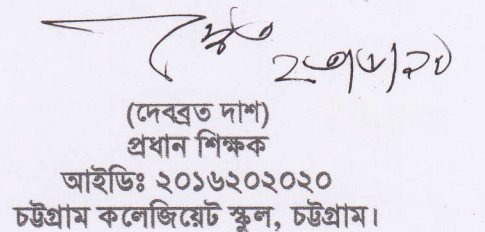 (দেবব্রত দাশ)
প্রধান শিক্ষক
আইডিঃ ২০১৬২০২০২০
চট্টগ্রাম কলেজিয়েট স্কুল, চট্টগ্রাম।